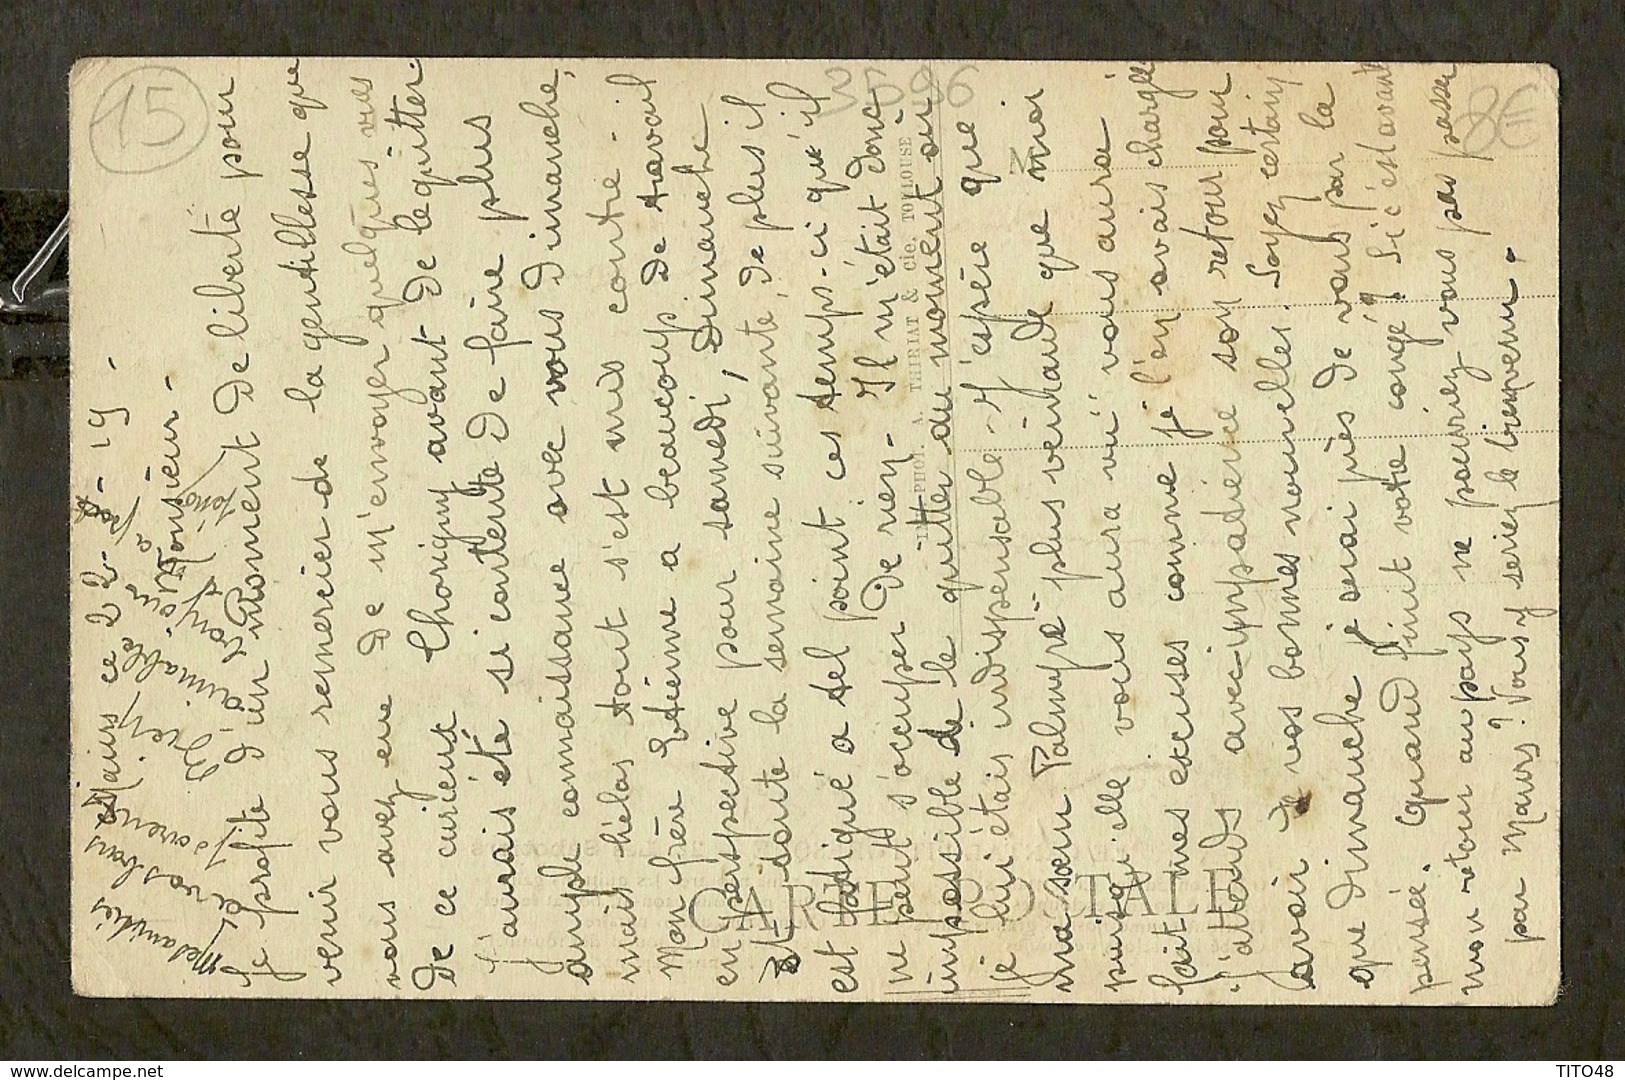 Maurs ce 22-8-19-
Monsieur-
Je profite d'un moment de liberté pour
venir vous remercier de la gentillesse que
vous avez eue de m'envoyer quelques vues
de ce curieux Thorigny avant de le quitter.
J'aurais été si contente de faire plus
ample connaissance avec vous dimanche,
mais hélas tout s'est mis contre-
Mon frère Etienne a beaucoup de travail
en perspective pour samedi, dimanche
et toute la semaine suivante, de plus il
est fatigué a tel point ces temps-ci qu'il
ne peut s'occuper de rien- Il m'était donc
impossible de le quitter au moment où
je lui étais indispensable- J'espère que
ma sœur Palmyre plus veinarde que moi
puisqu'elle vous aura vu vous aura
fait mes excuses comme je l'en avais chargée
J'attends avec impatience son retour pour
avoir de vos bonnes nouvelles. Soyez certain
que dimanche je serai près de vous par la
pensée. Quand finit votre congé? Si c'est avant
mon retour au pays ne pourriez vous pas passer
par Maurs? Vous y seriez le bienvenu.
Mes amitiés
à vos bons
parents
Bien
aimable
bonjour
à
CARTE POSTALE
PHOT. A. THIRIAT & Cie. TOULOUSE
15
3596
8€
www.delcampe.net
TITO48